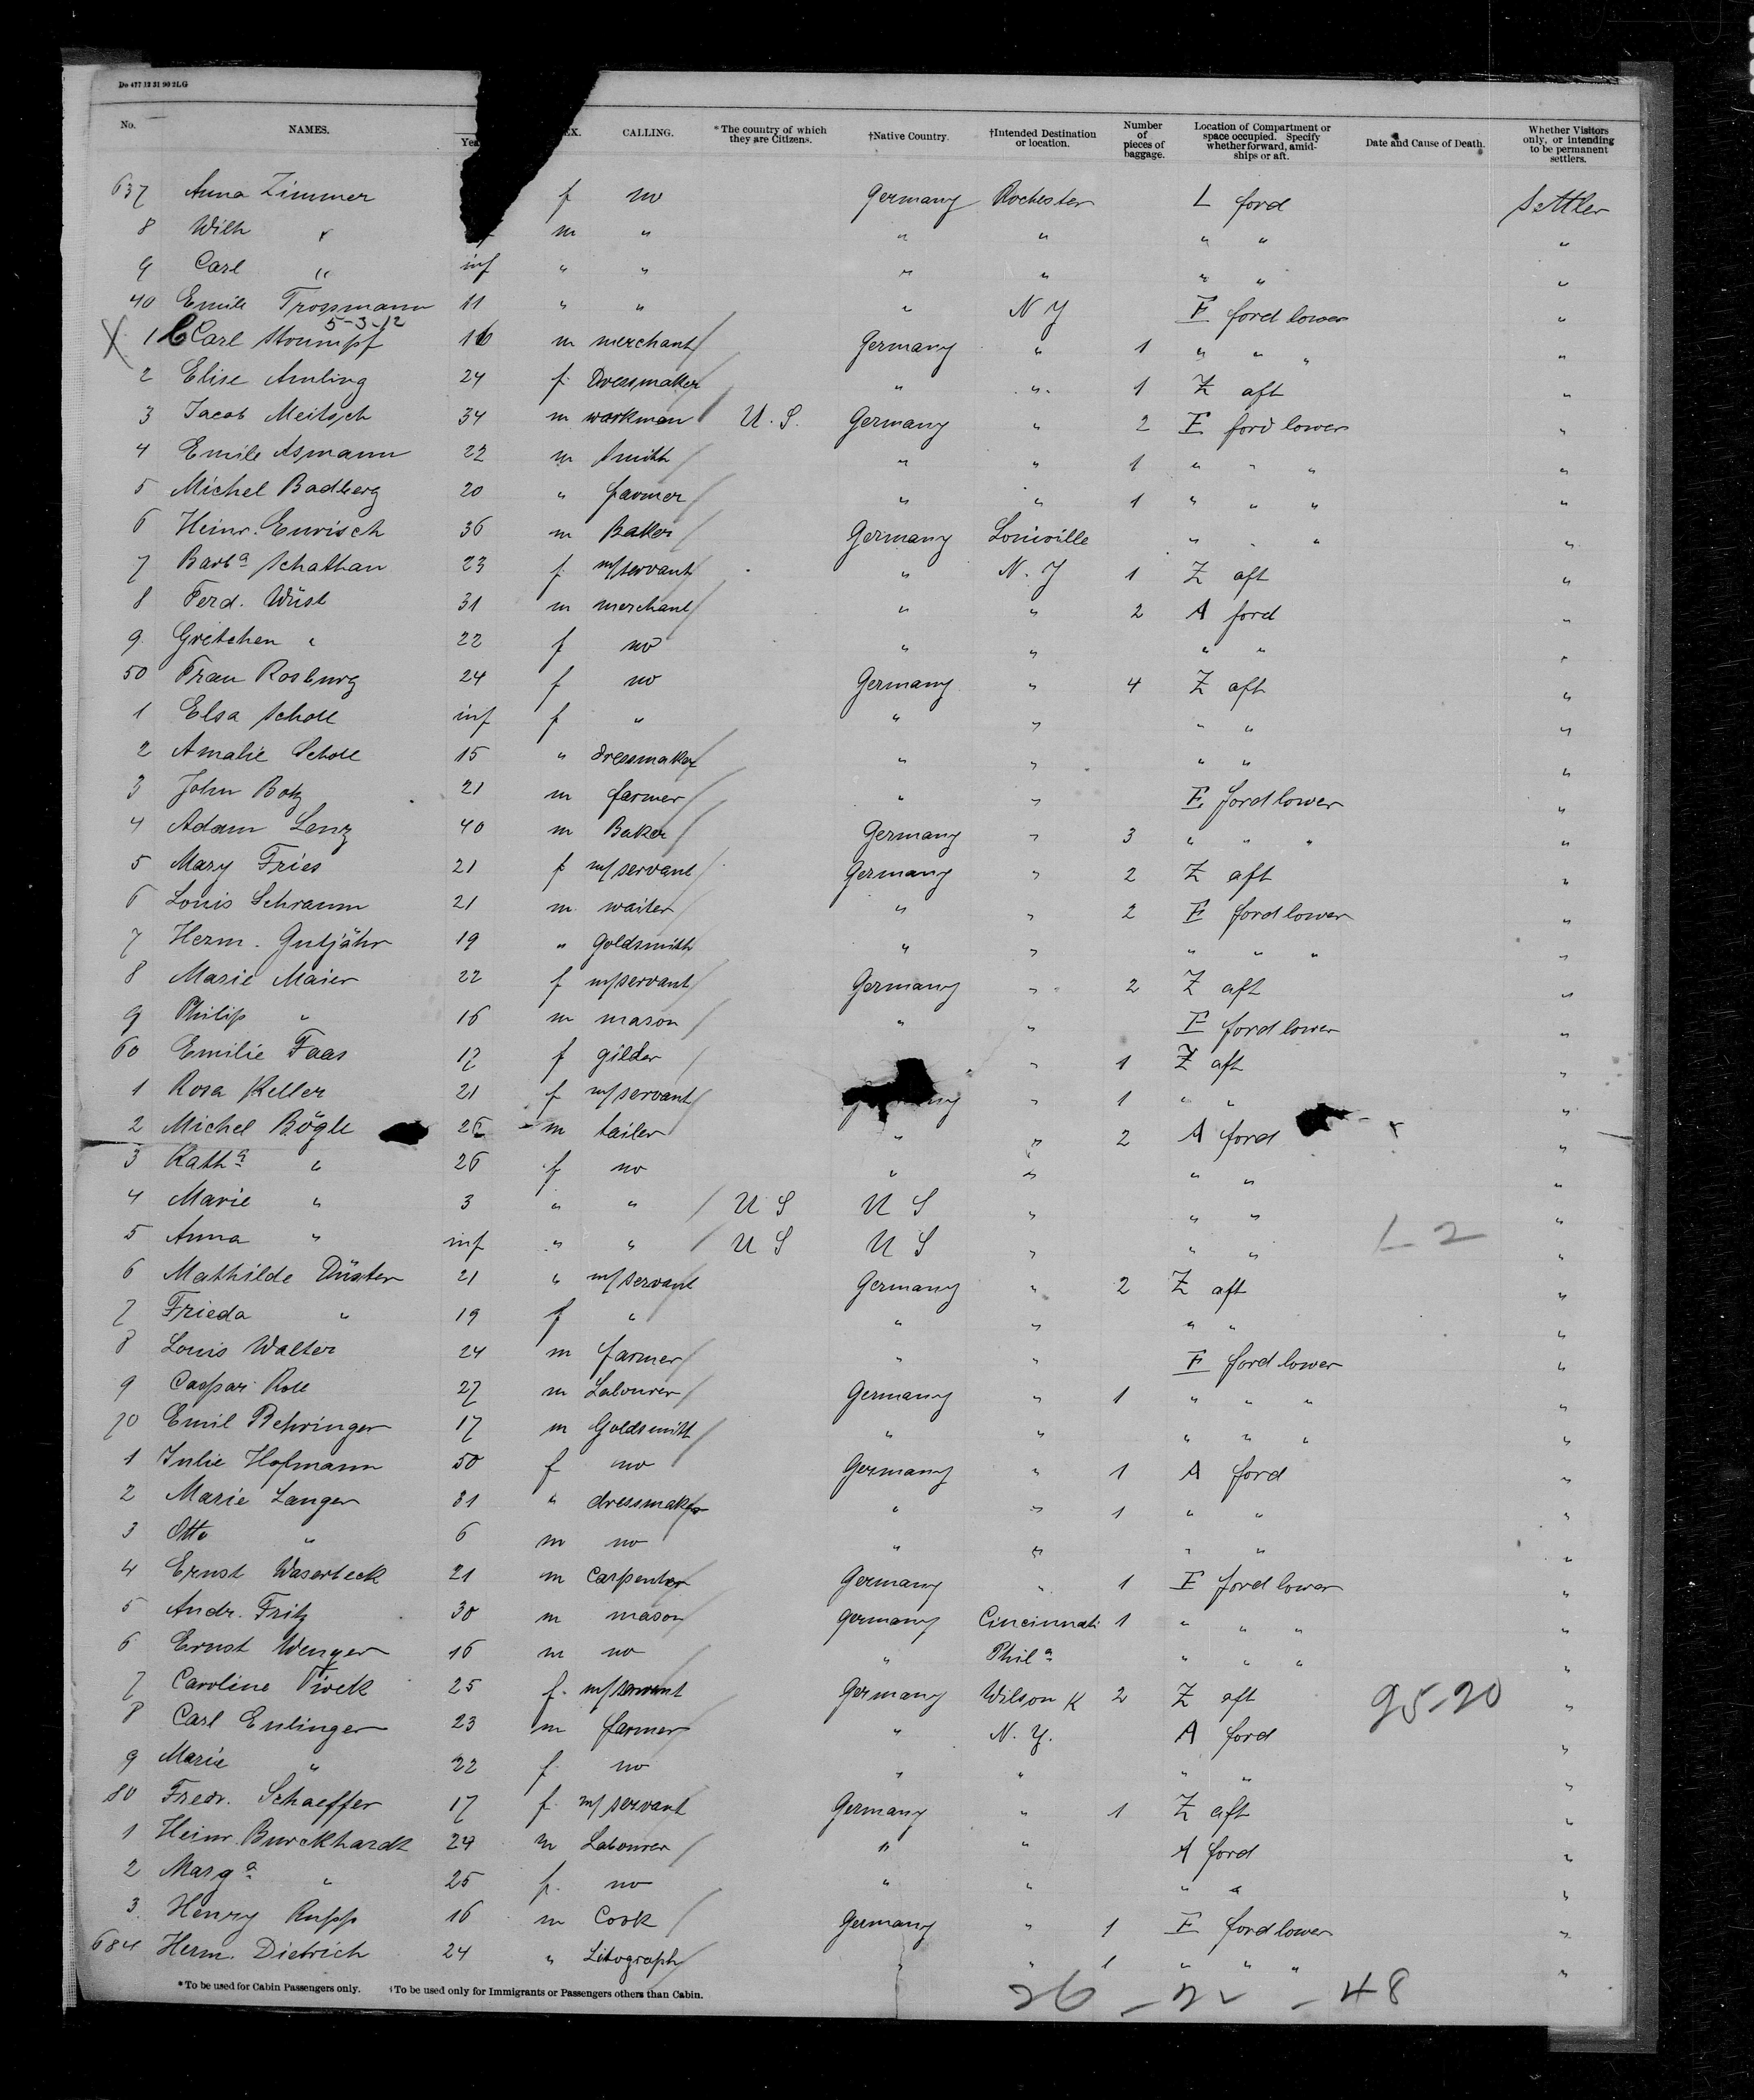 Do 477 12 31 90 2LG
No. NAMES. Yea EX. CALLING. *The country of which they are Citizens. †Native Country. †Intended Destination or location. Number of pieces of baggage. Location of Compartment or space occupied. Specify whether forward, amidships or aft. Date and Cause of Death. Whether Visitors only, or intending to be permanent settlers.
637 Anna Zimmer f no Germany Rochester L ford Settler
8 Wilh " m " " " " " "
9 Carl " inf " " " " " " "
40 Emile Trossmann 11 " " " N Y E ford lower "
5-3-12
X 1 Carl Stumpf 16 m merchant Germany " 1 " " " "
2 Elise Amling 24 f Dressmaker " " 1 Z aft "
3 Jacob Meitsch 34 m workman U.S. Germany " 2 E ford lower "
4 Emile Asmann 22 m Smith " " 1 " " " "
5 Michel Badberg 20 " farmer " " 1 " " " "
6 Heinr. Enrisch 36 m Baker Germany Louiville " " " "
7 Barbª Schathan 23 f m/servant " N. Y 1 Z aft "
8 Ferd. Wüst 31 m merchant " " 2 A ford "
9 Gretchen " 22 f no " " " " "
50 Frau Rosburg 24 f no Germany " 4 Z aft "
1 Elsa Scholl inf f " " " " " "
2 Amalie Scholl 15 " dressmaker " " " " "
3 John Botz 21 m farmer " " E ford lower "
4 Adam Lenz 40 m Baker Germany " 3 " " " "
5 Mary Fries 21 f m/servant Germany " 2 Z aft "
6 Louis Schramm 21 m waiter " " 2 E ford lower "
7 Herm. Gutjähr 19 " Goldsmith " " " " " "
8 Marie Maier 22 f m/servant Germany " 2 Z aft "
9 Philip " 16 m mason " " E ford lower "
60 Emilie Faas 17 f gilder " 1 Z aft "
1 Rosa Keller 21 f m/servant Germany " 1 " " "
2 Michel Bögle 26 m tailer " " 2 A ford "
3 Kathª " 26 f no " " " " "
4 Marie " 3 " " U S U S " " " "
5 Anna " inf " " U S U S " " " "
1-2
6 Mathilde Düster 21 " m/servant Germany " 2 Z aft "
7 Frieda " 19 f " " " " " "
8 Louis Walter 24 m farmer " " E ford lower "
9 Caspar Roll 27 m Labourer Germany " 1 " " " "
70 Emil Behringer 17 m Goldsmith " " " " " "
1 Julie Hofmann 50 f no Germany " 1 A ford "
2 Marie Langer 31 " dressmaker " " 1 " " "
3 Otto " 6 m no " " " " "
4 Ernst Waserbeck 21 m Carpenter Germany " 1 E ford lower "
5 Andr. Fritz 30 m mason Germany Cincinnati 1 " " " "
6 Ernst Wenger 16 m no " Philª " " " "
7 Caroline 25 f m/servant Germany Wilson K 2 Z aft "
95-20
8 Carl Enlinger 23 m farmer " N. Y. A ford "
9 Marie " 22 f no " " " " "
80 Fredr. Schaeffer 17 f m/servant Germany " 1 Z aft "
1 Heinr. Burckhardt 24 m Labourer " " A ford "
2 Margª " 25 f no " " " " "
3 Henry Rupp 16 m Cook Germany " 1 E ford lower "
684 Herm. Dietrich 24 " Litograph " " 1 " " " "
*To be used for Cabin Passengers only. †To be used only for Immigrants or Passengers others than Cabin.
26 - 22 - 48